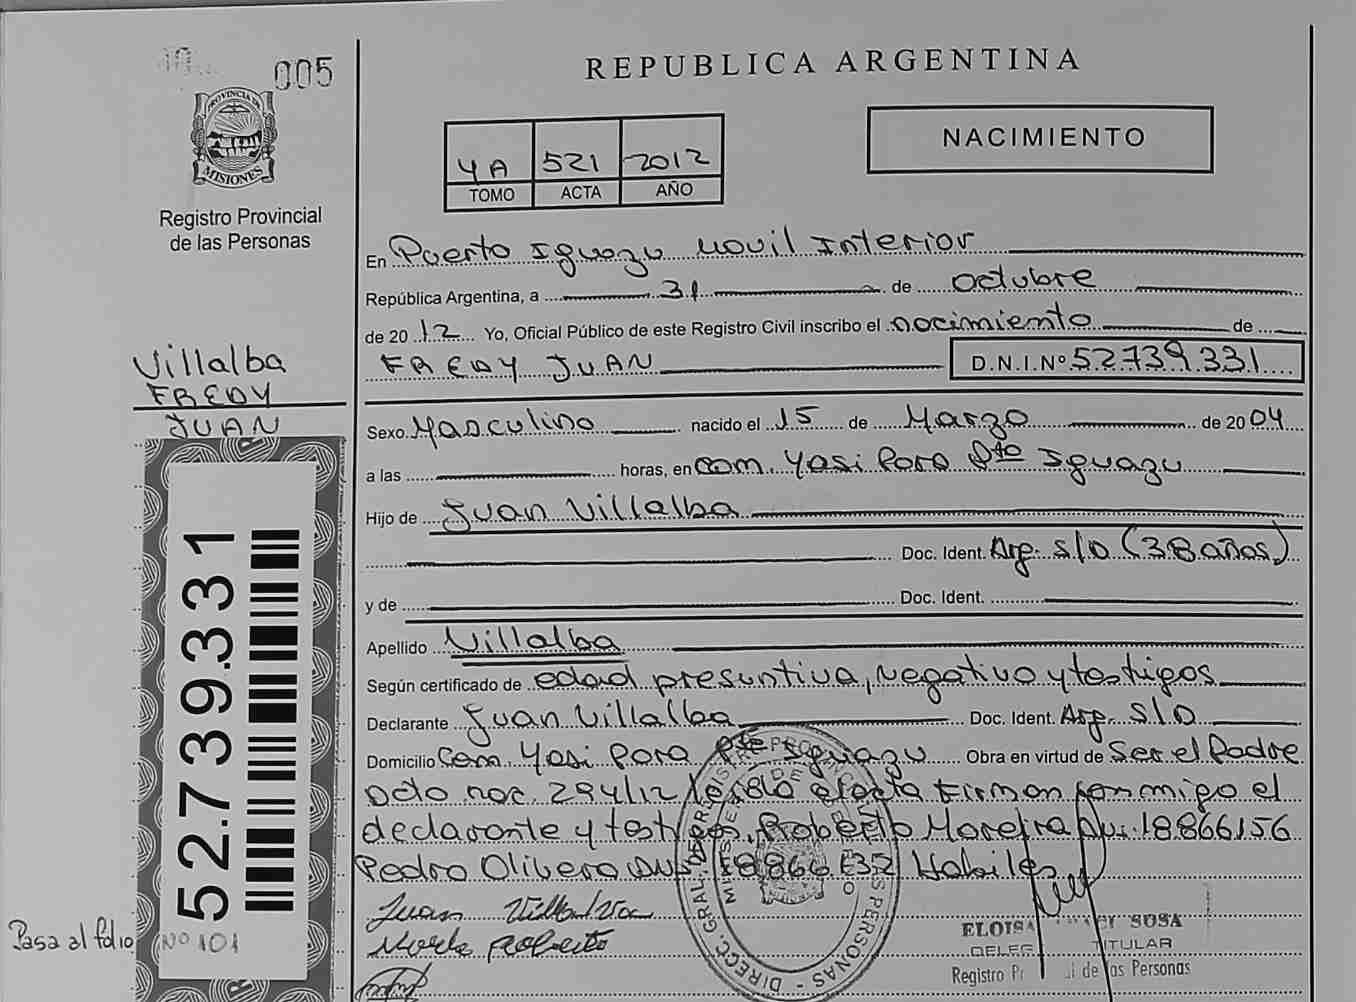 005
PROVINCIA DE
MISIONES
Registro Provincial
de las Personas
REPUBLICA ARGENTINA
4A 521 2012
TOMO ACTA AÑO
NACIMIENTO
En Puerto Iguazu Movil Interior
República Argentina, a 31 de octubre
de 2012 Yo, Oficial Público de este Registro Civil inscribo el nacimiento de
FREDY JUAN D.N.I.Nº 52739.331
Villalba
FREDY
JUAN
Sexo Masculino nacido el 15 de Marzo de 2004
a las horas, en com. Yasi Poro Pto Iguazu
Hijo de Juan Villalba
Doc. Ident. Arg. S/D (38 años)
y de Doc. Ident.
Apellido Villalba
Según certificado de edad presuntiva, negativo y testigos
Declarante Juan Villalba Doc. Ident. Arg. S/D
Domicilio Com. Yasi Poro Pto Iguazu Obra en virtud de Ser el Padre
Dcto. nac. 294/12 efecto Firman conmigo el
declarante y testigos, Roberto Moreira Dni. 18866156
Pedro Olivera Dni 18866132 Habiles
52.739.331
Juan Villalva
Roberto
ELOISA SOSA
TITULAR
Registro de las Personas
Pasa al folio
Nº 101